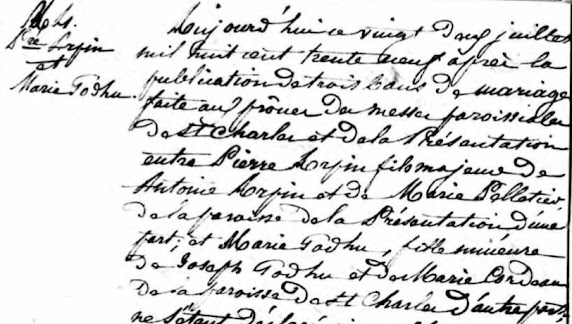 M. 4.
Pre Arpin
et
Marie Godhu.
Aujourd'hui ce vingt deux juillet
mil huit cent trente neuf après la
publication de trois bans de mariage
faite aux prônes des messes paroissiales
de St Charles et de la Présentation
entre Pierre Arpin fils majeur de
Antoine Arpin et de Marie Pelletier,
de la paroisse de la Présentation d'une
part; et Marie Godhu, fille mineure
de Joseph Godhu et de Marie Cordeau
de la paroisse de St Charles d'autre part;
ne s'étant